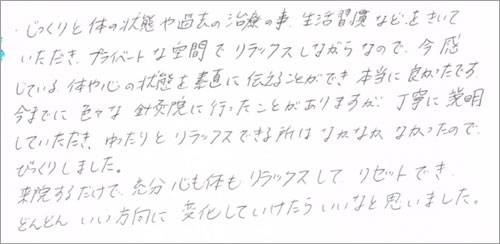 ・じっくりと体の状態や過去の治療の事、生活習慣などをきいて
いただき、プライベートな空間でリラックスしながらなので、今感
じている体や心の状態を素直に伝えることができ本当に良かったです。
今までに色々な針灸院に行ったことがありますが、丁寧に説明
していただき、ゆったりとリラックスできる所はなかなかなかったので、
びっくりしました。
来院するだけで、充分心も体もリラックスして、リセットでき、
どんどんいい方向に変化していけたらいいなと思いました。